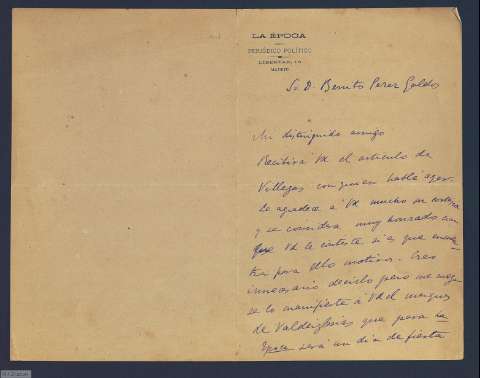 LA ÉPOCA
PERIÓDICO POLÍTICO
LIBERTAD, 18
MADRID
Sr D. Benito Perez Galdós
Mi distinguido amigo
Recibirá Vd. el artículo de
Villegas con quien hablé ayer.
Le agradece á Vd mucho su
y se considera muy honrado con
que Vd le conteste si es que encuen-
tra para ello motivos. Creo
innecesario decirlo pero me ruega
se lo manifieste á Vd el marqués
de Valdeiglesias que para la
Época será un día de fiesta